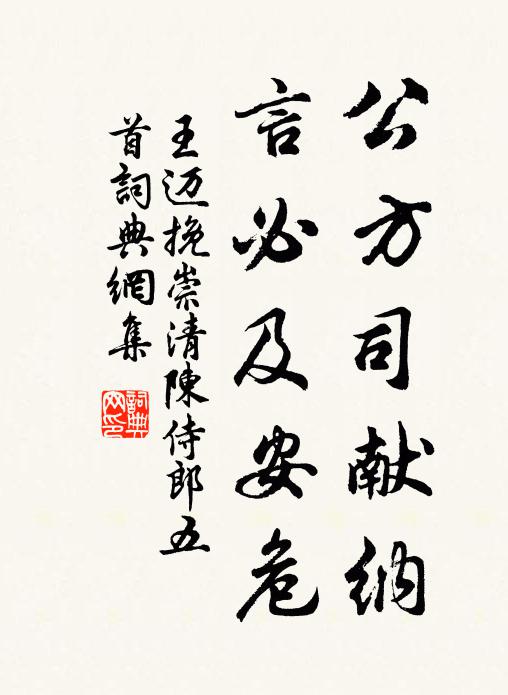 公方司献纳
言必及安危
王迈挽崇清陳侍郎五
首詞典網集
詞典网印